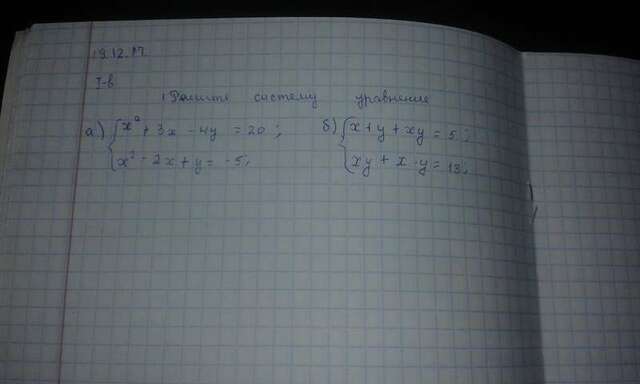 19.12.17
I-в
1 Решить систему уравнение
а) { x² + 3x - 4y = 20;
{ x² - 2x + y = -5;
б) { x + y + xy = 5;
{ xy + x - y = 13;